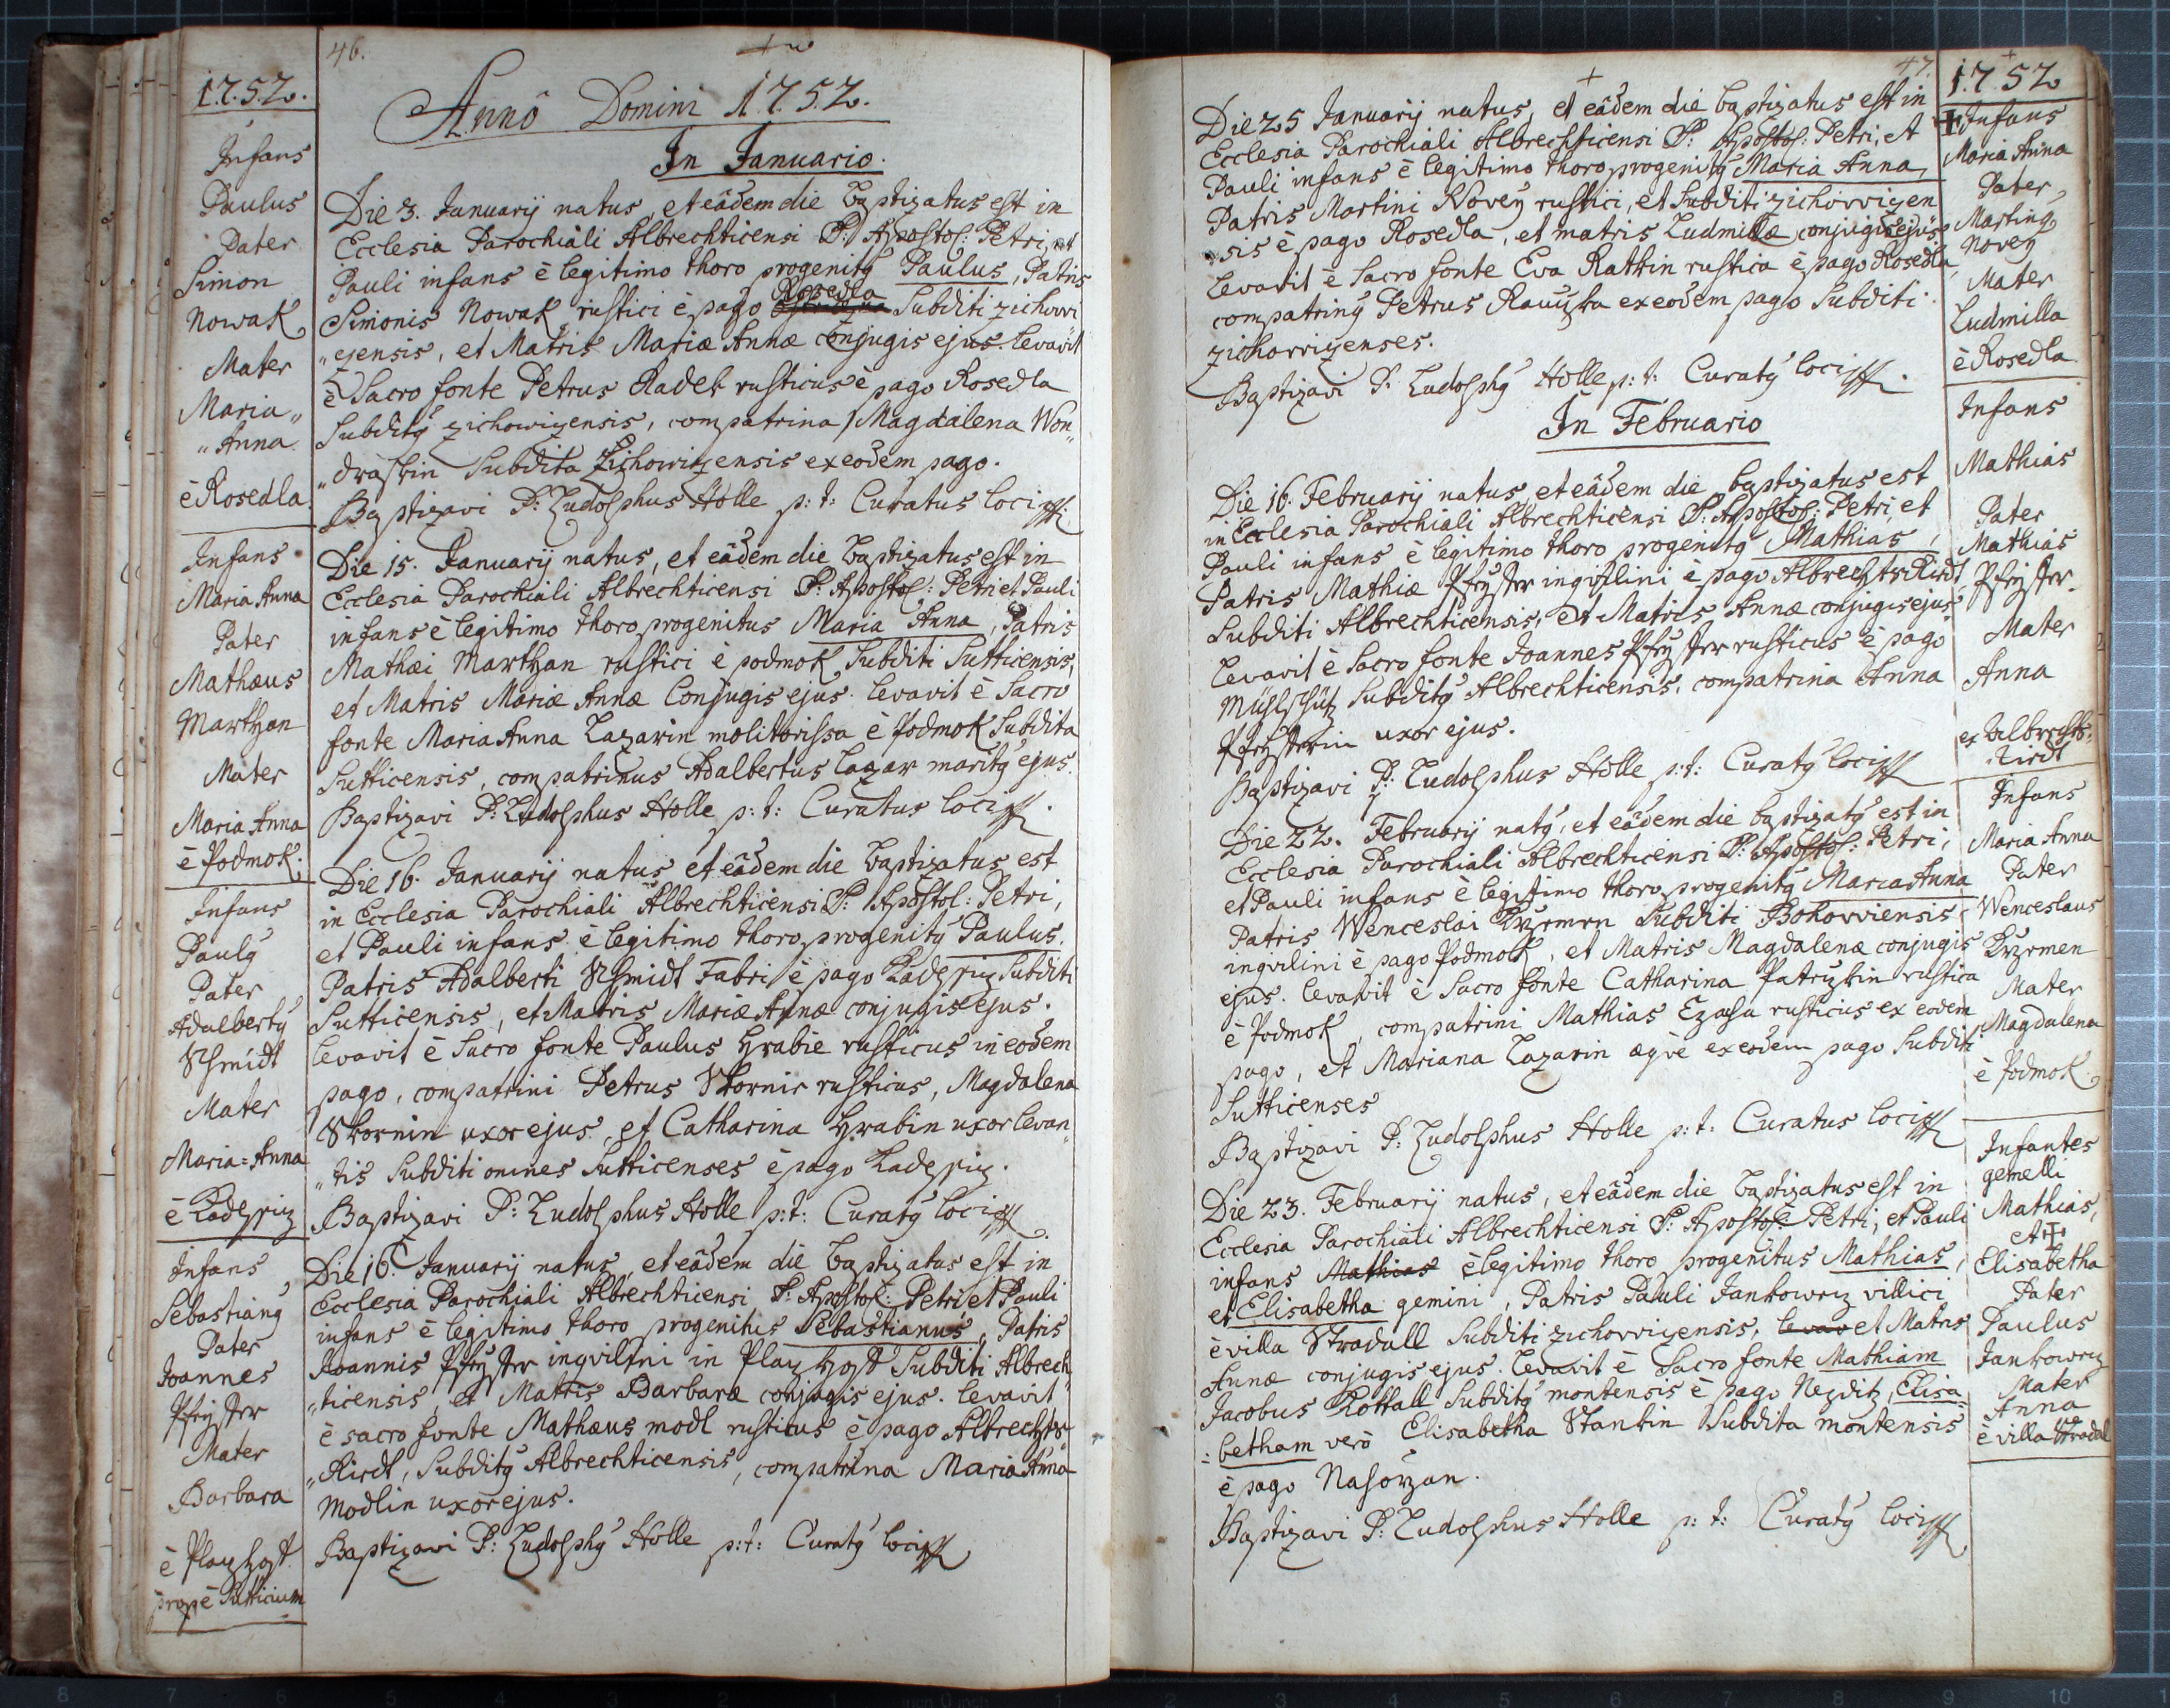 1752.
Infans
Paulus
Pater
Simon
Nowak
Mater
Maria„
„Anna
è Rosedla.
Infans
Maria Anna
Pater
Mathæus
Marthan
Mater
Maria Anna
è Podmok.
Infans
Paulq
Pater
Adalbertq
Schmidt
Mater
Maria=Anna
è
Infans
Sebastianq
Pater
Joannes
Mater
Barbara
è
propè Sutticium
46.
Annô Domini 1752.
In Januario.
Die 3. Januarij natus, et eâdem die baptizatus est in
Ecclesia Parochiali Albrechticensi S: Apostol: Petri, et
Pauli infans è legitimo thoro progenitq Paulus, Patris
Rosedla
Simonis Nowak rustici è pago Subditi zichowi
„zensis, et Matris Mariæ Annæ conjugis ejus. levavit
è Sacro fonte Petrus Radek rusticus è pago Rosedla
Subditq zichowizensis, compatrina Magdalena Won„
„draskin Subdita Zichowizensis ex eodem pago.
Baptizavi P: Ludolphus Holle p: t: Curatus loci
Die 15. Januarij natus, et eâdem die baptizatus est in
Ecclesia Parochiali Albrechticensi S: Apostol: Petri et Pauli
infans è legitimo thoro progenitus Maria Anna, Patris
Mathæi Marthan rustici è podmok Subditi Sutticensis,
et Matris Mariæ Annæ Conjugis ejus. levavit è Sacro
fonte Maria Anna Lazarin molitorissa è Podmok Subdita
Sutticensis, compatrinus Adalbertus Lazar maritq ejus.
Baptizavi P: Ludolphus Holle p: t: Curatus loci
Die 16. Januarij natus et eâdem die baptizatus est
in Ecclesia Parochiali Albrechticensi S: Apostol: Petri,
et Pauli infans è legitimo thoro progenitq Paulus.
Patris Adalberti Schmidt Fabri è pago Subditi
Sutticensis, et Matris Mariæ Annæ conjugis ejus.
levavit è Sacro fonte Paulus Hrabie rusticus in eodem
pago, compatrini Petrus rusticus, Magdalena
uxor ejus, et Catharina Hrabin uxor levan„
„tis Subditi omnes Sutticenses è pago
Baptizavi P: Ludolphus Holle p: t: Curatq loci
Die 16. Januarij natus, et eâdem die baptizatus est in
Ecclesia Parochiali Albrechticensi S: Apostol: Petri et Pauli
infans è legitimo thoro progenitus Sebastianus, Patris
Joannis inqvilini in Subditi Albrech„
„ticensis, et Matris Barbaræ conjugis ejus. levavit
è sacro fonte Mathæus modl rusticus è pago Albrechts„
„Riedt, Subditq Albrechticensis, compatrina Maria Anna
modlin uxor ejus.
Baptizavi P: Ludolphq Holle p: t: Curatq loci
47.
Die 25 Januarij natus, et eâdem die baptizatus est in
Ecclesia Parochiali Albrechticensi S: Apostol: Petri, et
Pauli infans è legitimo thoro progenitq Maria Anna,
Patris Martini Novey rustici, et Subditi zichovvizen
„sis è pago Rosedla, et matris Ludmillæ conjugis ejus.
levavit è Sacro fonte Eva rustica è pago Rosedla
compatrinq Petrus ex eodem pago Subditi
zichovvizenses.
Baptizavi P. Ludolphq Holle p: t: Curatq loci
In Februario
Die 16. Februarij natus, et eâdem die baptizatus est
in Ecclesia Parochiali Albrechticensi S: Apostol: Petri, et
Pauli infans è legitimo thoro progenitq Mathias,
Patris Mathiæ inqvilini è pago Albrechtsriedt
Subditi Albrechticensis, et Matris Annæ conjugis ejus
levavit è Sacro fonte Joannes rusticus è pago
Subditq Albrechticensis, compatrina Anna
uxor ejus.
Baptizavi P: Ludolphus Holle p: t: Curatq loci
Die 22. Februarij natq, et eâdem die baptizatq est in
Ecclesia Parochiali Albrechticensi S: Apostol: Petri,
et Pauli infans è legitimo thoro progenitq Maria Anna
Patris Wenceslai Subditi
inqvilini è pago Podmok, et Matris Magdalenæ conjugis
ejus. levavit è Sacro fonte Catharina rustica
è Podmok, compatrini Mathias rusticus ex eodem
pago, et Mariana Lazarin æqve ex eodem pago Subditi
Sutticenses
Baptizavi P: Ludolphus Holle p: t: Curatus loci
Die 23. Februarij natus, et eâdem die baptizatus est in
Ecclesia Parochiali Albrechticensi S: Apostol: Petri, et Pauli
infans Mathias è legitimo thoro progenitus Mathias,
et Elisabetha gemini, Patris Pauli villici
è villa Subditi zichovvizensis, levav et Matris
Annæ conjugis ejus. levavit è Sacro fonte Mathiam
Jacobus Subditq montensis è pago Nezditz, Elisa„
„betham verò Elisabetha Stankin Subdita montensis
è pago
Baptizavi P: Ludolphus Holle p: t: Curatq loci
1752
Infans
Maria Anna
Pater
Martinq
Novey
Mater
Ludmilla
è Rosedla
Infans
Mathias
Pater
Mathias
Mater
Anna
ex Albrechts„
Riedt
Infans
Maria Anna
Pater
Wenceslaus
Mater
Magdalena
è Podmok
Infantes
gemelli
Mathias,
et
Elisabetha
Pater
Paulus
Mater
Anna
è villa